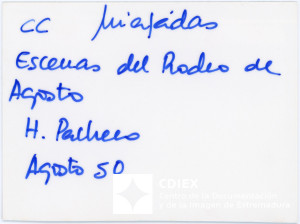 CC Miajadas
Escenas del Rodeo de
Agosto
H. Pacheco
Agosto 50
CDIEX